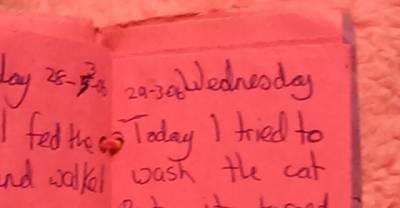 day 28-3-06
I fed the
and walked
29-3-06 Wednesday
Today I tried to
wash the cat